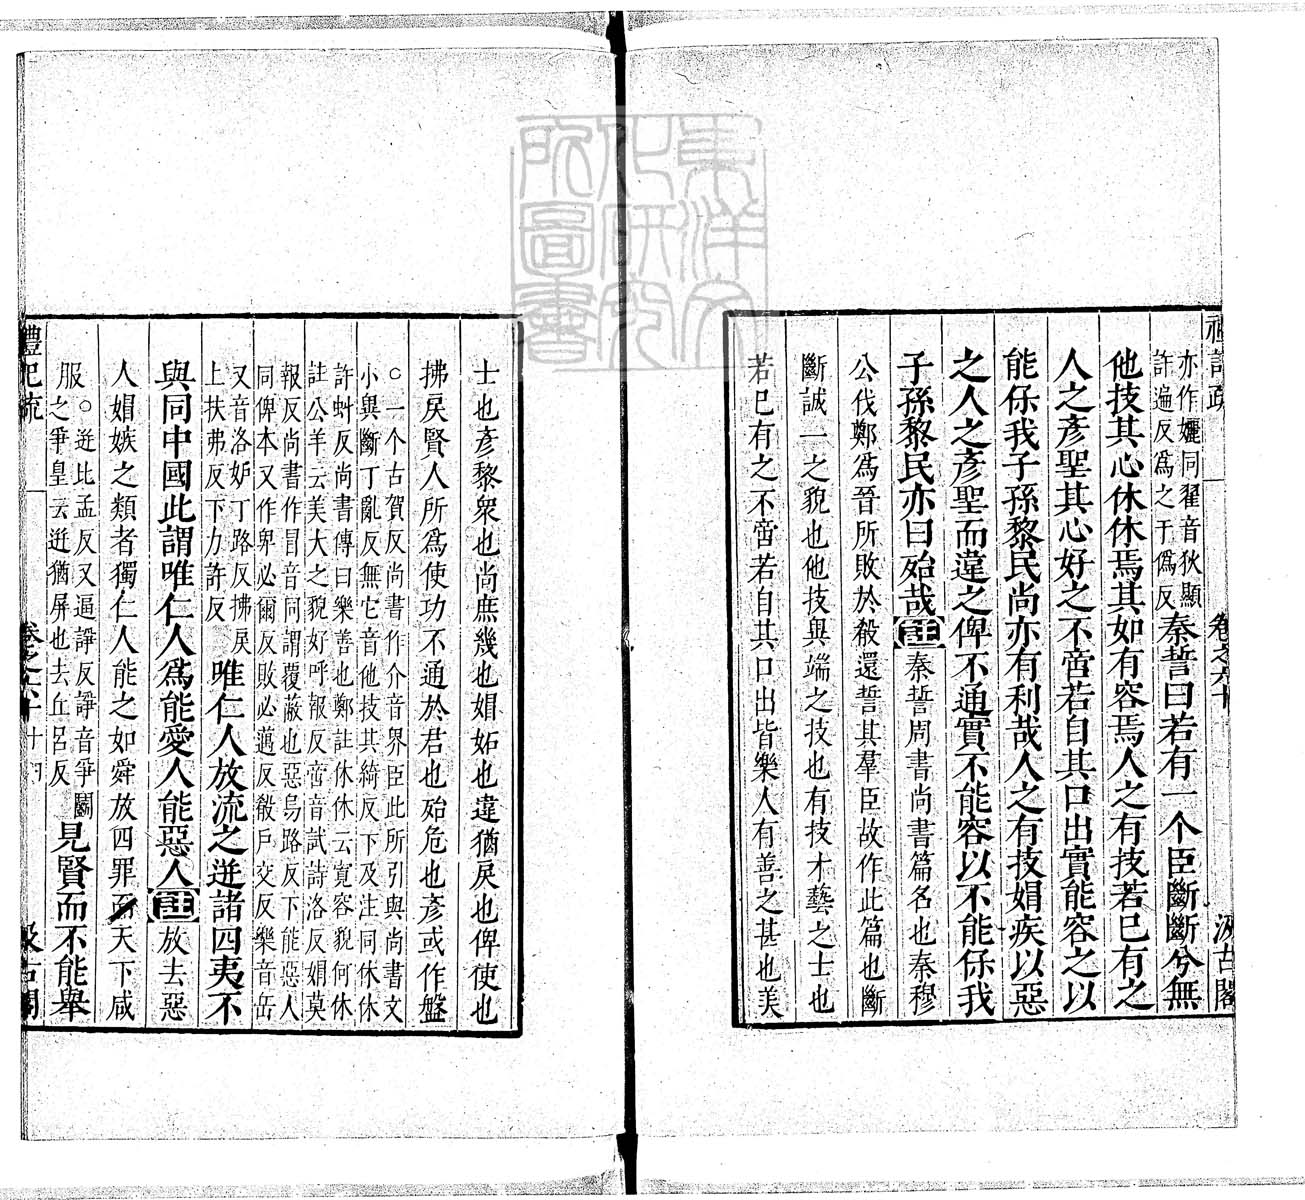 禮記疏 卷之六十 汲古閣
亦作孋同翟音狄顯
許遍反爲之于僞反
秦誓曰若有一个臣斷斷兮無
他技其心休休焉其如有容焉人之有技若已有之
人之彥聖其心好之不啻若自其口出實能容之以
能保我子孫黎民尚亦有利哉人之有技媢疾以惡
之人之彥聖而違之俾不通實不能容以不能保我
子孫黎民亦曰殆哉註秦誓周書尚書篇名也秦穆
公伐鄭爲晉所敗於殽還誓其羣臣故作此篇也斷
斷誠一之貌也他技異端之技也有技才藝之士也
若已有之不啻若自其口出皆樂人有善之甚也美
士也彥黎衆也尚庶幾也媢妬也違猶戾也俾使也
拂戾賢人所爲使功不通於君也殆危也彥或作盤
○一个古賀反尚書作介音界臣此所引與尚書文
小異斷丁亂反無它音他技其綺反下及注同休休
許虯反尚書傳曰樂善也鄭註休休云寬容貌何休
註公羊云美大之貌好呼報反啻音試詩洛反媢莫
報反尚書作冒音同謂覆蔽也惡烏路反下能惡人
同俾本又作卑必爾反敗必邁反殽戶交反樂音岳
又音洛妬丁路反拂戾
上扶弗反下力許反
唯仁人放流之迸諸四夷不
與同中國此謂唯仁人爲能愛人能惡人註放去惡
人媢嫉之類者獨仁人能之如舜放四罪而天下咸
服○迸比孟反又逼諍反諍音爭鬭
之爭皇云迸猶屏也去丘呂反
見賢而不能舉
禮記疏 卷之六十 十四 汲古閣
東洋文化研究所圖書